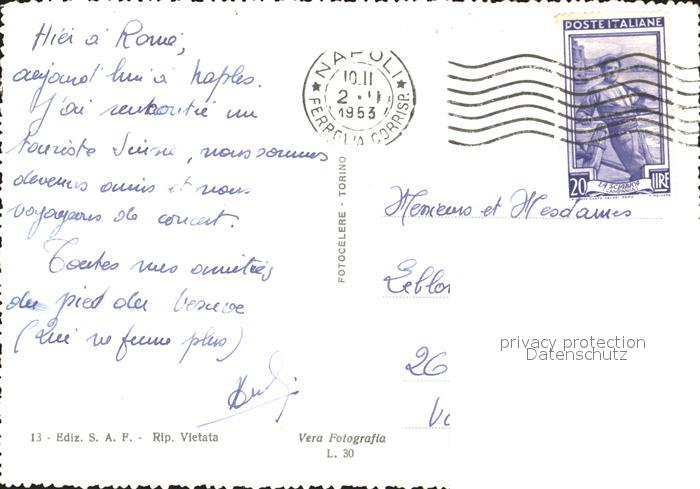 Hier à Rome,
aujourd'hui à Naples.
J'ai rencontré un
touriste Suisse, nous sommes
devenus amis et nous
voyageons de concert.
Toutes mes amitiés
du pied du Vésuve
(qui ne fume plus)
13 - Ediz. S. A. F. - Rip. Vietata
Vera Fotografia
L. 30
FOTOCELERE - TORINO
NAPOLI
10.II
1953
FERROVIA CORRISP.
POSTE ITALIANE
20 LIRE
Messieurs et Mesdames
Leblo
26
privacy protection
Datenschutz